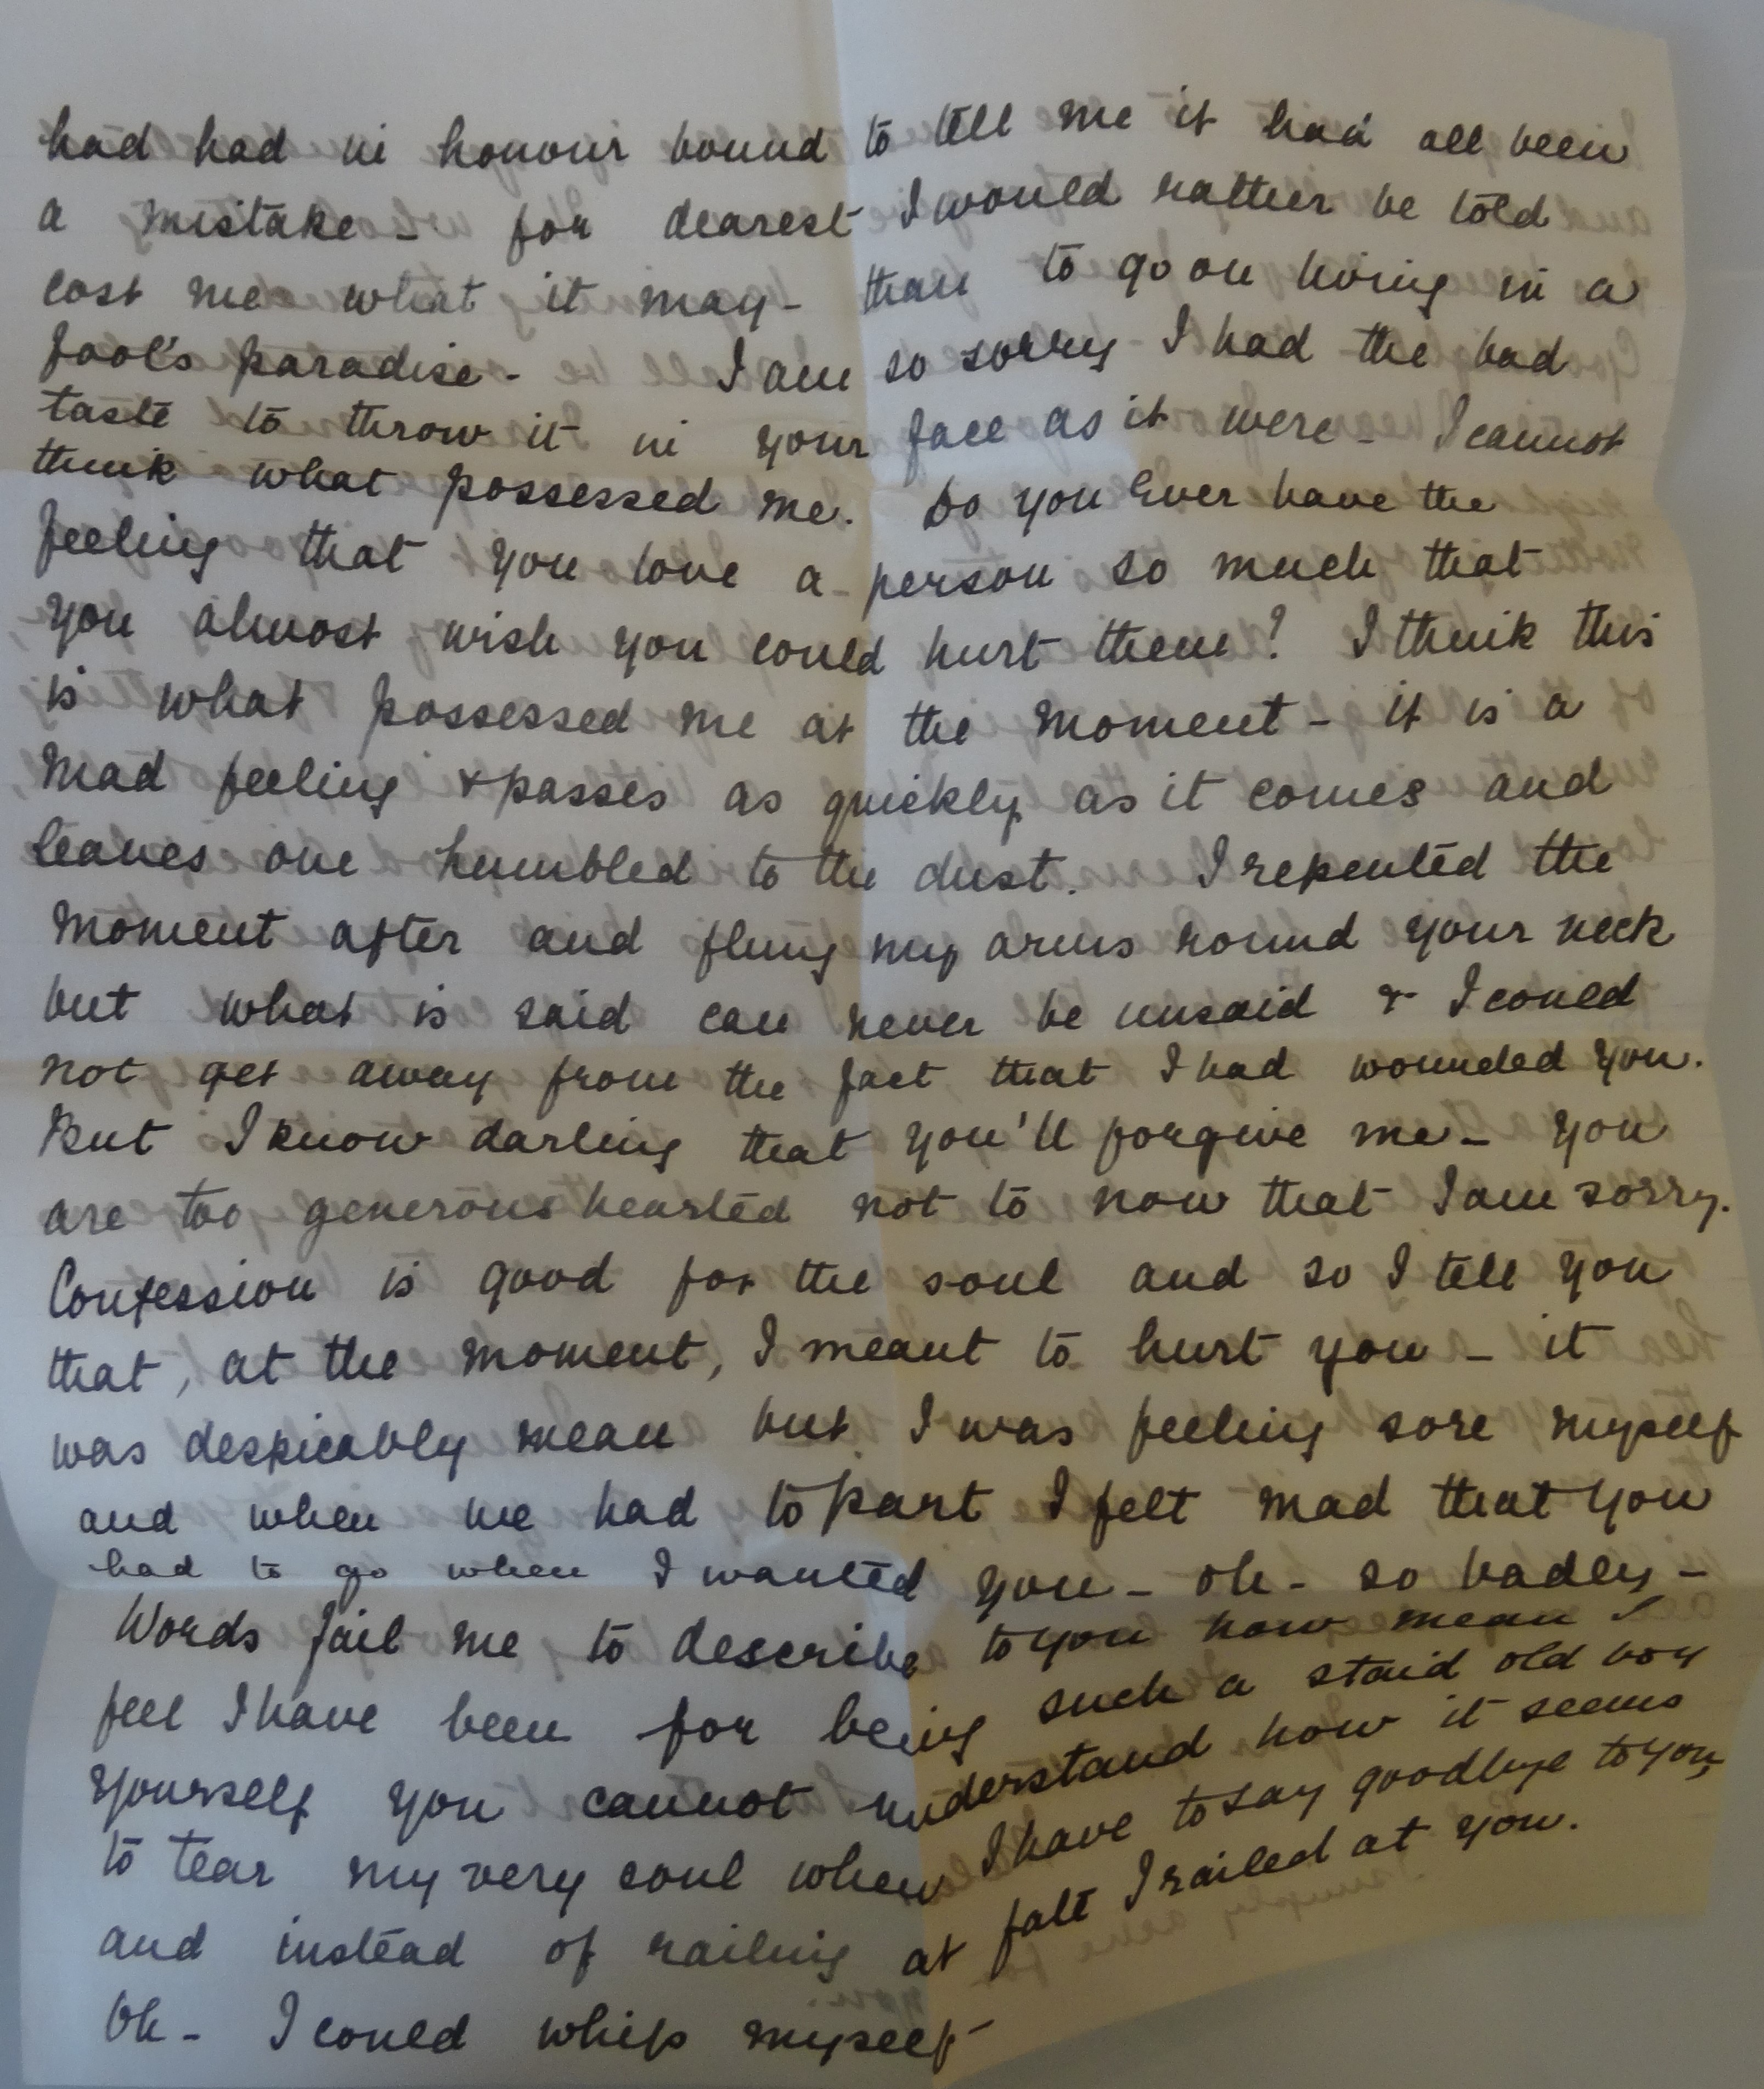 had had in honour bound to tell me it had all been
a mistake - for dearest I would rather be told
cost me what it may - than to go on living in a
fool's paradise - I am so sorry I had the bad
taste to throw it in your face as it were - I cannot
think what possessed me. Do you ever have the
feeling that you love a person so much that
you almost wish you could hurt them? I think this
is what possessed me at the moment - it is a
mad feeling & passes as quickly as it comes and
leaves one humbled to the dust. I repented the
moment after and flung my arms round your neck
but what is said can never be unsaid & I could
not get away from the fact that I had wounded you.
But I know darling that you'll forgive me - you
are too generous hearted not to now that I am sorry.
Confession is good for the soul and so I tell you
that, at the moment, I meant to hurt you - it
was despicably mean but I was feeling sore myself
and when we had to part I felt mad that you
had to go when I wanted you - oh - so badly -
Words fail me to describe to you how mean I
feel I have been for being such a staid old boy
yourself you cannot understand how it seems
to tear my very soul when I have to say goodbye to you
and instead of railing at fate I railed at you.
Oh - I could whip myself -